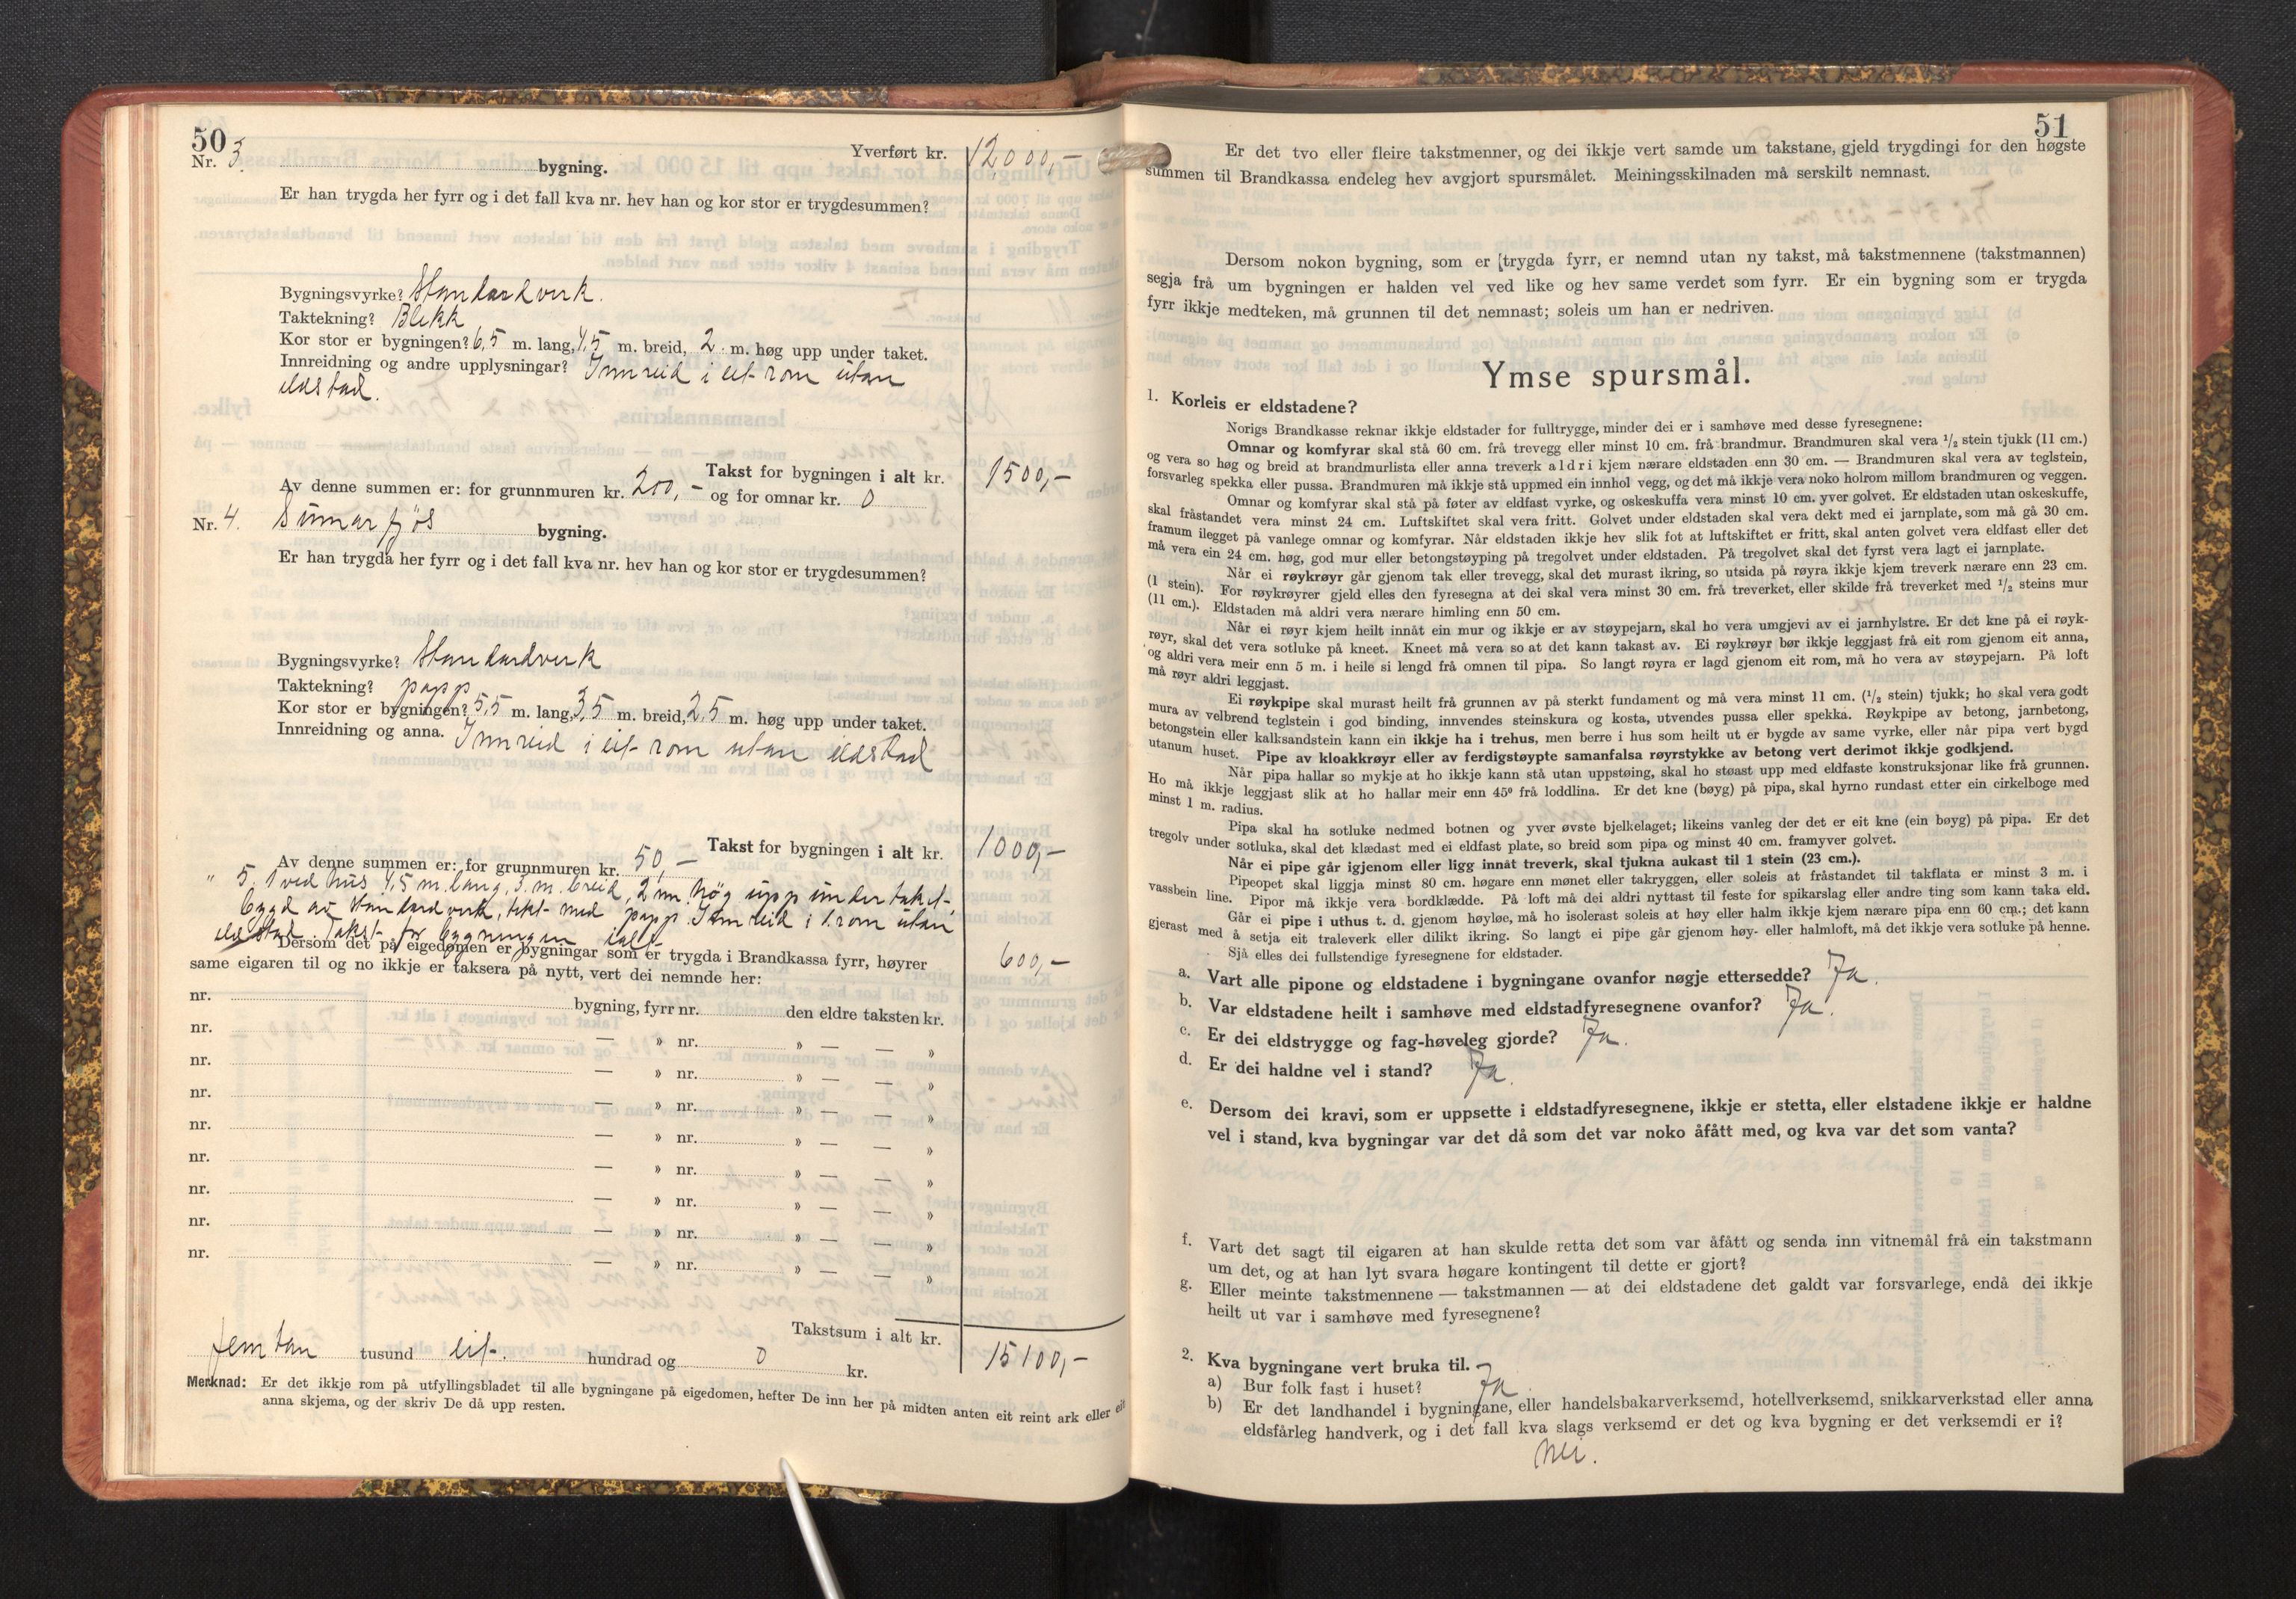 50
Nr. 3. bygning. Yverført kr. 12000,-
Er han trygda her fyrr og i det fall kva nr. hev han og kor stor er trygdesummen?
Bygningsvyrke? Standardverk.
Taktekning? Blekk
Kor stor er bygningen? 6,5 m. lang, 4,5 m. breid, 2 m. høg upp under taket.
Innreidning og andre upplysningar? Innreid i eit rom utan
eldstad.
Takst for bygningen i alt kr. 1500,-
Av denne summen er: for grunnmuren kr. 200,- og for omnar kr. 0
Nr. 4. Sumarfjös bygning.
Er han trygda her fyrr og i det fall kva nr. hev han og kor stor er trygdesummen?
Bygningsvyrke? Standardverk
Taktekning? papp
Kor stor er bygningen? 5,5 m. lang, 3,5 m. breid, 2,5 m. høg upp under taket.
Innreidning og anna. Innreid i eit rom utan eldstad
Takst for bygningen i alt kr. 1000,-
Av denne summen er: for grunnmuren kr. 50,-
" 5. 1 vedhus 4,5 m. lang, 3 m. breid, 2 m. høg upp under taket,
bygd av standardverk, tekt med papp. Innreid i 1 rom utan
eldstad. Takst for bygningen ialt 600,-
Dersom det på eigedomen er bygningar som er trygda i Brandkassa fyrr, høyrer
same eigaren til og no ikkje er taksera på nytt, vert dei nemnde her:
nr. bygning, fyrr nr. den eldre taksten kr.
nr. — » nr. » — — »
nr. — » nr. » — — »
nr. — » nr. » — — »
nr. — » nr. » — — »
nr. — » nr. » — — »
nr. — » nr. » — — »
nr. — » nr. » — — »
nr. — » nr. » — — »
Takstsum i alt kr. 15100,-
femtan tusund eit hundrad og 0 kr.
Merknad: Er det ikkje rom på utfyllingsbladet til alle bygningane på eigedomen, hefter De inn her på midten anten eit reint ark eller eit
anna skjema, og der skriv De då upp resten.
51
Er det tvo eller fleire takstmenner, og dei ikkje vert samde um takstane, gjeld trygdingi for den høgste
summen til Brandkassa endeleg hev avgjort spursmålet. Meiningsskilnaden må serskilt nemnast.
Dersom nokon bygning, som er trygda fyrr, er nemnd utan ny takst, må takstmennene (takstmannen)
segja frå um bygningen er halden vel ved like og hev same verdet som fyrr. Er ein bygning som er trygda
fyrr ikkje medteken, må grunnen til det nemnast; soleis um han er nedriven.
Ymse spursmål.
1. Korleis er eldstadene?
Norigs Brandkasse reknar ikkje eldstader for fulltrygge, minder dei er i samhøve med desse fyresegnene:
Omnar og komfyrar skal stå 60 cm. frå trevegg eller minst 10 cm. frå brandmur. Brandmuren skal vera 1/2 stein tjukk (11 cm.)
og vera so høg og breid at brandmurlista eller anna treverk aldri kjem nærare eldstaden enn 30 cm. — Brandmuren skal vera av teglstein,
forsvarleg spekka eller pussa. Brandmuren må ikkje stå uppmed ein innhol vegg, og det må ikkje vera noko holrom millom brandmuren og veggen.
Omnar og komfyrar skal stå på føter av eldfast vyrke, og oskeskuffa vera minst 10 cm. yver golvet. Er eldstaden utan oskeskuffe,
skal fråstandet vera minst 24 cm. Luftskiftet skal vera fritt. Golvet under eldstaden skal vera dekt med ei jarnplate, som må gå 30 cm.
framum ilegget på vanlege omnar og komfyrar. Når eldstaden ikkje hev slik fot at luftskiftet er fritt, skal anten golvet vera eldfast eller det
må vera ein 24 cm. høg, god mur eller betongstøyping på tregolvet under eldstaden. På tregolvet skal det fyrst vera lagt ei jarnplate.
Når ei røykrøyr går gjenom tak eller trevegg, skal det murast ikring, so utsida på røyra ikkje kjem treverk nærare enn 23 cm.
(1 stein). For røykrøyrer gjeld elles den fyresegna at dei skal vera minst 30 cm. frå treverket, eller skilde frå treverket med 1/2 steins mur
(11 cm.). Eldstaden må aldri vera nærare himling enn 50 cm.
Når ei røyr kjem heilt innåt ein mur og ikkje er av støypejarn, skal ho vera umgjevi av ei jarnhylstre. Er det kne på ei røyk-
røyr, skal det vera sotluke på kneet. Kneet må vera so at det kann takast av. Ei røykrøyr bør ikkje leggjast frå eit rom gjenom eit anna,
og aldri vera meir enn 5 m. i heile si lengd frå omnen til pipa. So langt røyra er lagd gjenom eit rom, må ho vera av støypejarn. På loft
må røyr aldri leggjast.
Ei røykpipe skal murast heilt frå grunnen av på sterkt fundament og må vera minst 11 cm. (1/2 stein) tjukk; ho skal vera godt
mura av velbrend teglstein i god binding, innvendes steinskura og kosta, utvendes pussa eller spekka. Røykpipe av betong, jarnbetong,
betongstein eller kalksandstein kann ein ikkje ha i trehus, men berre i hus som heilt ut er bygde av same vyrke, eller når pipa vert bygd
utanum huset. Pipe av kloakkrøyr eller av ferdigstøypte samanfalsa røyrstykke av betong vert derimot ikkje godkjend.
Når pipa hallar so mykje at ho ikkje kann stå utan uppstøing, skal ho støast upp med eldfaste konstruksjonar like frå grunnen.
Ho må ikkje leggjast slik at ho hallar meir enn 45° frå loddlina. Er det kne (bøyg) på pipa, skal hyrno rundast etter ein cirkelboge med
minst 1 m. radius.
Pipa skal ha sotluke nedmed botnen og yver øvste bjelkelaget; likeins vanleg der det er eit kne (ein bøyg) på pipa. Er det
tregolv under sotluka, skal det klædast med ei eldfast plate, so breid som pipa og minst 40 cm. framyver golvet.
Når ei pipe går igjenom eller ligg innåt treverk, skal tjukna aukast til 1 stein (23 cm.).
Pipeopet skal liggja minst 80 cm. høgare enn mønet eller takryggen, eller soleis at fråstandet til takflata er minst 3 m. i
vassbein line. Pipor må ikkje vera bordklædde. På loft må dei aldri nyttast til feste for spikarslag eller andre ting som kann taka eld.
Går ei pipe i uthus t. d. gjenom høyløe, må ho isolerast soleis at høy eller halm ikkje kjem nærare pipa enn 60 cm.; det kann
gjerast med å setja eit traleverk eller dilikt ikring. So langt ei pipe går gjenom høy- eller halmloft, må det ikkje vera sotluke på henne.
Sjå elles dei fullstendige fyresegnene for eldstader.
a. Vart alle pipone og eldstadene i bygningane ovanfor nøgje ettersedde? Ja.
b. Var eldstadene heilt i samhøve med eldstadfyresegnene ovanfor? Ja.
c. Er dei eldstrygge og fag-høveleg gjorde? Ja.
d. Er dei haldne vel i stand? Ja.
e. Dersom dei kravi, som er uppsette i eldstadfyresegnene, ikkje er stetta, eller elstadene ikkje er haldne
vel i stand, kva bygningar var det då som det var noko åfått med, og kva var det som vanta?
f. Vart det sagt til eigaren at han skulde retta det som var åfått og senda inn vitnemål frå ein takstmann
um det, og at han lyt svara høgare kontingent til dette er gjort?
g. Eller meinte takstmennene — takstmannen — at dei eldstadene det galdt var forsvarlege, endå dei ikkje
heilt ut var i samhøve med fyresegnene?
2. Kva bygningane vert bruka til.
a) Bur folk fast i huset? Ja
b) Er det landhandel i bygningane, eller handelsbakarverksemd, hotellverksemd, snikkarverkstad eller anna
eldsfårleg handverk, og i det fall kva slags verksemd er det og kva bygning er det verksemdi er i?
nei.